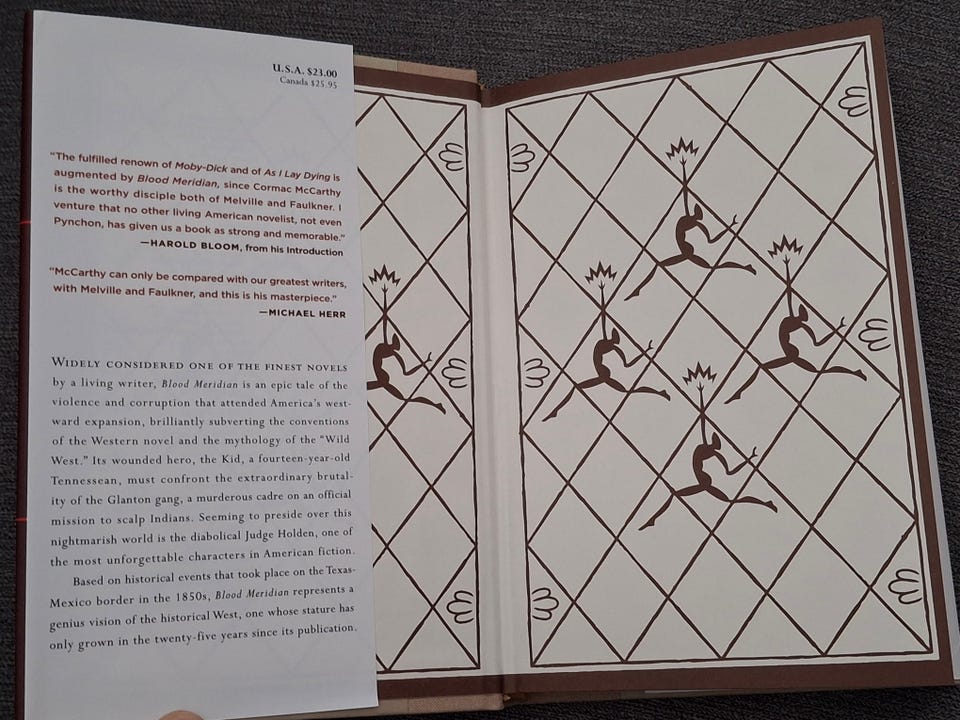 U.S.A. $23.00
Canada $25.95
"The fulfilled renown of Moby-Dick and of As I Lay Dying is
augmented by Blood Meridian, since Cormac McCarthy
is the worthy disciple both of Melville and Faulkner. I
venture that no other living American novelist, not even
Pynchon, has given us a book as strong and memorable."
—HAROLD BLOOM, from his Introduction
"McCarthy can only be compared with our greatest writers,
with Melville and Faulkner, and this is his masterpiece."
—MICHAEL HERR
WIDELY CONSIDERED ONE OF THE FINEST NOVELS
by a living writer, Blood Meridian is an epic tale of the
violence and corruption that attended America's west-
ward expansion, brilliantly subverting the conventions
of the Western novel and the mythology of the "Wild
West." Its wounded hero, the Kid, a fourteen-year-old
Tennessean, must confront the extraordinary brutal-
ity of the Glanton gang, a murderous cadre on an official
mission to scalp Indians. Seeming to preside over this
nightmarish world is the diabolical Judge Holden, one of
the most unforgettable characters in American fiction.
Based on historical events that took place on the Texas-
Mexico border in the 1850s, Blood Meridian represents a
genius vision of the historical West, one whose stature has
only grown in the twenty-five years since its publication.